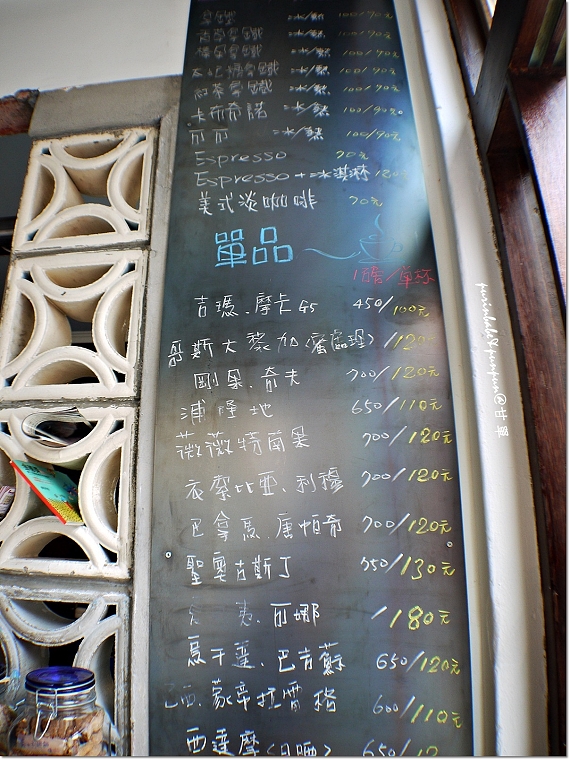 拿鐵 冰/熱 100/90元
冰/熱 100/90元
榛果拿鐵 冰/熱 100/90元
拿鐵 冰/熱 100/90元
紅茶拿鐵 冰/熱 100/90元
卡布奇諾 冰/熱 100/90元
可可 冰/熱 100/90元
Espresso 70元
Espresso+冰淇淋
美式淡咖啡 70元
單品
1磅/單杯
吉瑪.摩卡G5 450/100元
哥斯大黎加(蜜處理) /120
剛果.奇夫 700/120元
浦隆地 650/110元
薇薇特南果 700/120元
衣索比亞.利穆 700/120元
巴拿馬.唐帕奇 700/120元
聖奧古斯丁 750/130元
夷.可娜 /180元
馬干蓮.巴吉蘇 650/120元
西.蒙帝拉雷格 600/110元
西達摩(日曬) 650/
purinbabi&punpun@甘單